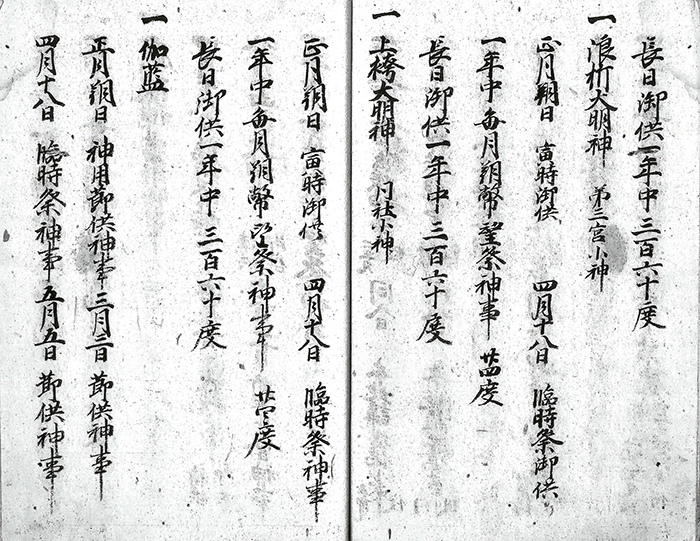 長日御供一年中三百六十度
一 浪折大明神 第三宮小神
正月朔日 富時御供 四月十八日 臨時祭御供
一年中毎月朔幣望祭神事 廿四度
長日御供一年中三百六十度
一 上袴大明神 同社小神
正月朔日 富時御供 四月十八日 臨時祭神事
一年中毎月朔幣望祭神事 廿四度
長日御供一年中三百六十度
一 伽藍
正月朔日 神用節供神事 三月三日 節供神事
四月十八日 臨時祭神事 五月五日 節供神事